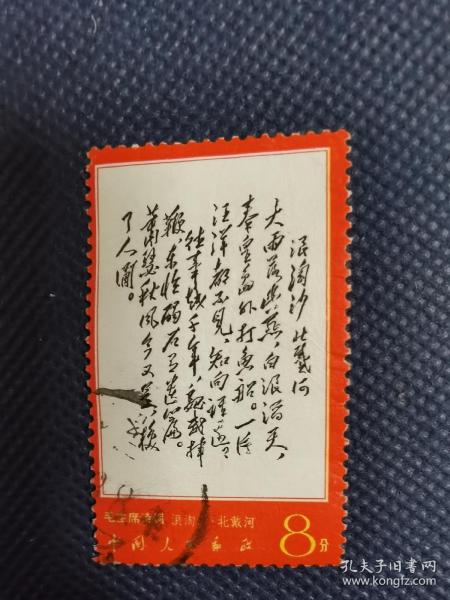 浪淘沙 北戴河
大雨落幽燕,白浪滔天,
秦皇島外打魚船。一片
汪洋都不見,知向誰邊?
往事越千年,魏武揮
鞭,東臨碣石有遺篇。
蕭瑟秋風今又是,換
了人間。
毛主席诗词 浪淘沙·北戴河
中国人民邮政 8分
孔夫子旧书网
kongfz.com